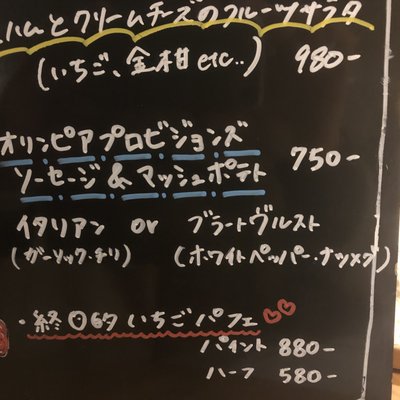 ハムとクリームチーズのフルーツサラダ
(いちご、金柑 etc..) 980-
オリンピアプロビジョンズ
ソーセージ & マッシュポテト 750-
イタリアン or ブラートヴルスト
(ガーリック・チリ) (ホワイトペッパー・ナツメグ)
・終日 いちごパフェ
パイント 880-
ハーフ 580-